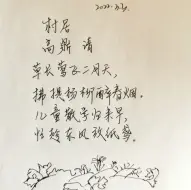 村居
高鼎 清
草长莺飞二月天，
拂堤杨柳醉春烟。
儿童散学归来早，
忙趁东风放纸鸢。